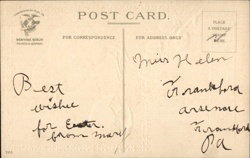 POST CARD.
FOR CORRESPONDENCE
FOR ADDRESS ONLY
PLACE
POSTAGE
HERE
Miss Helen
Frankford
Best
wishes
for Easter
from Mary
Frankford
Pa